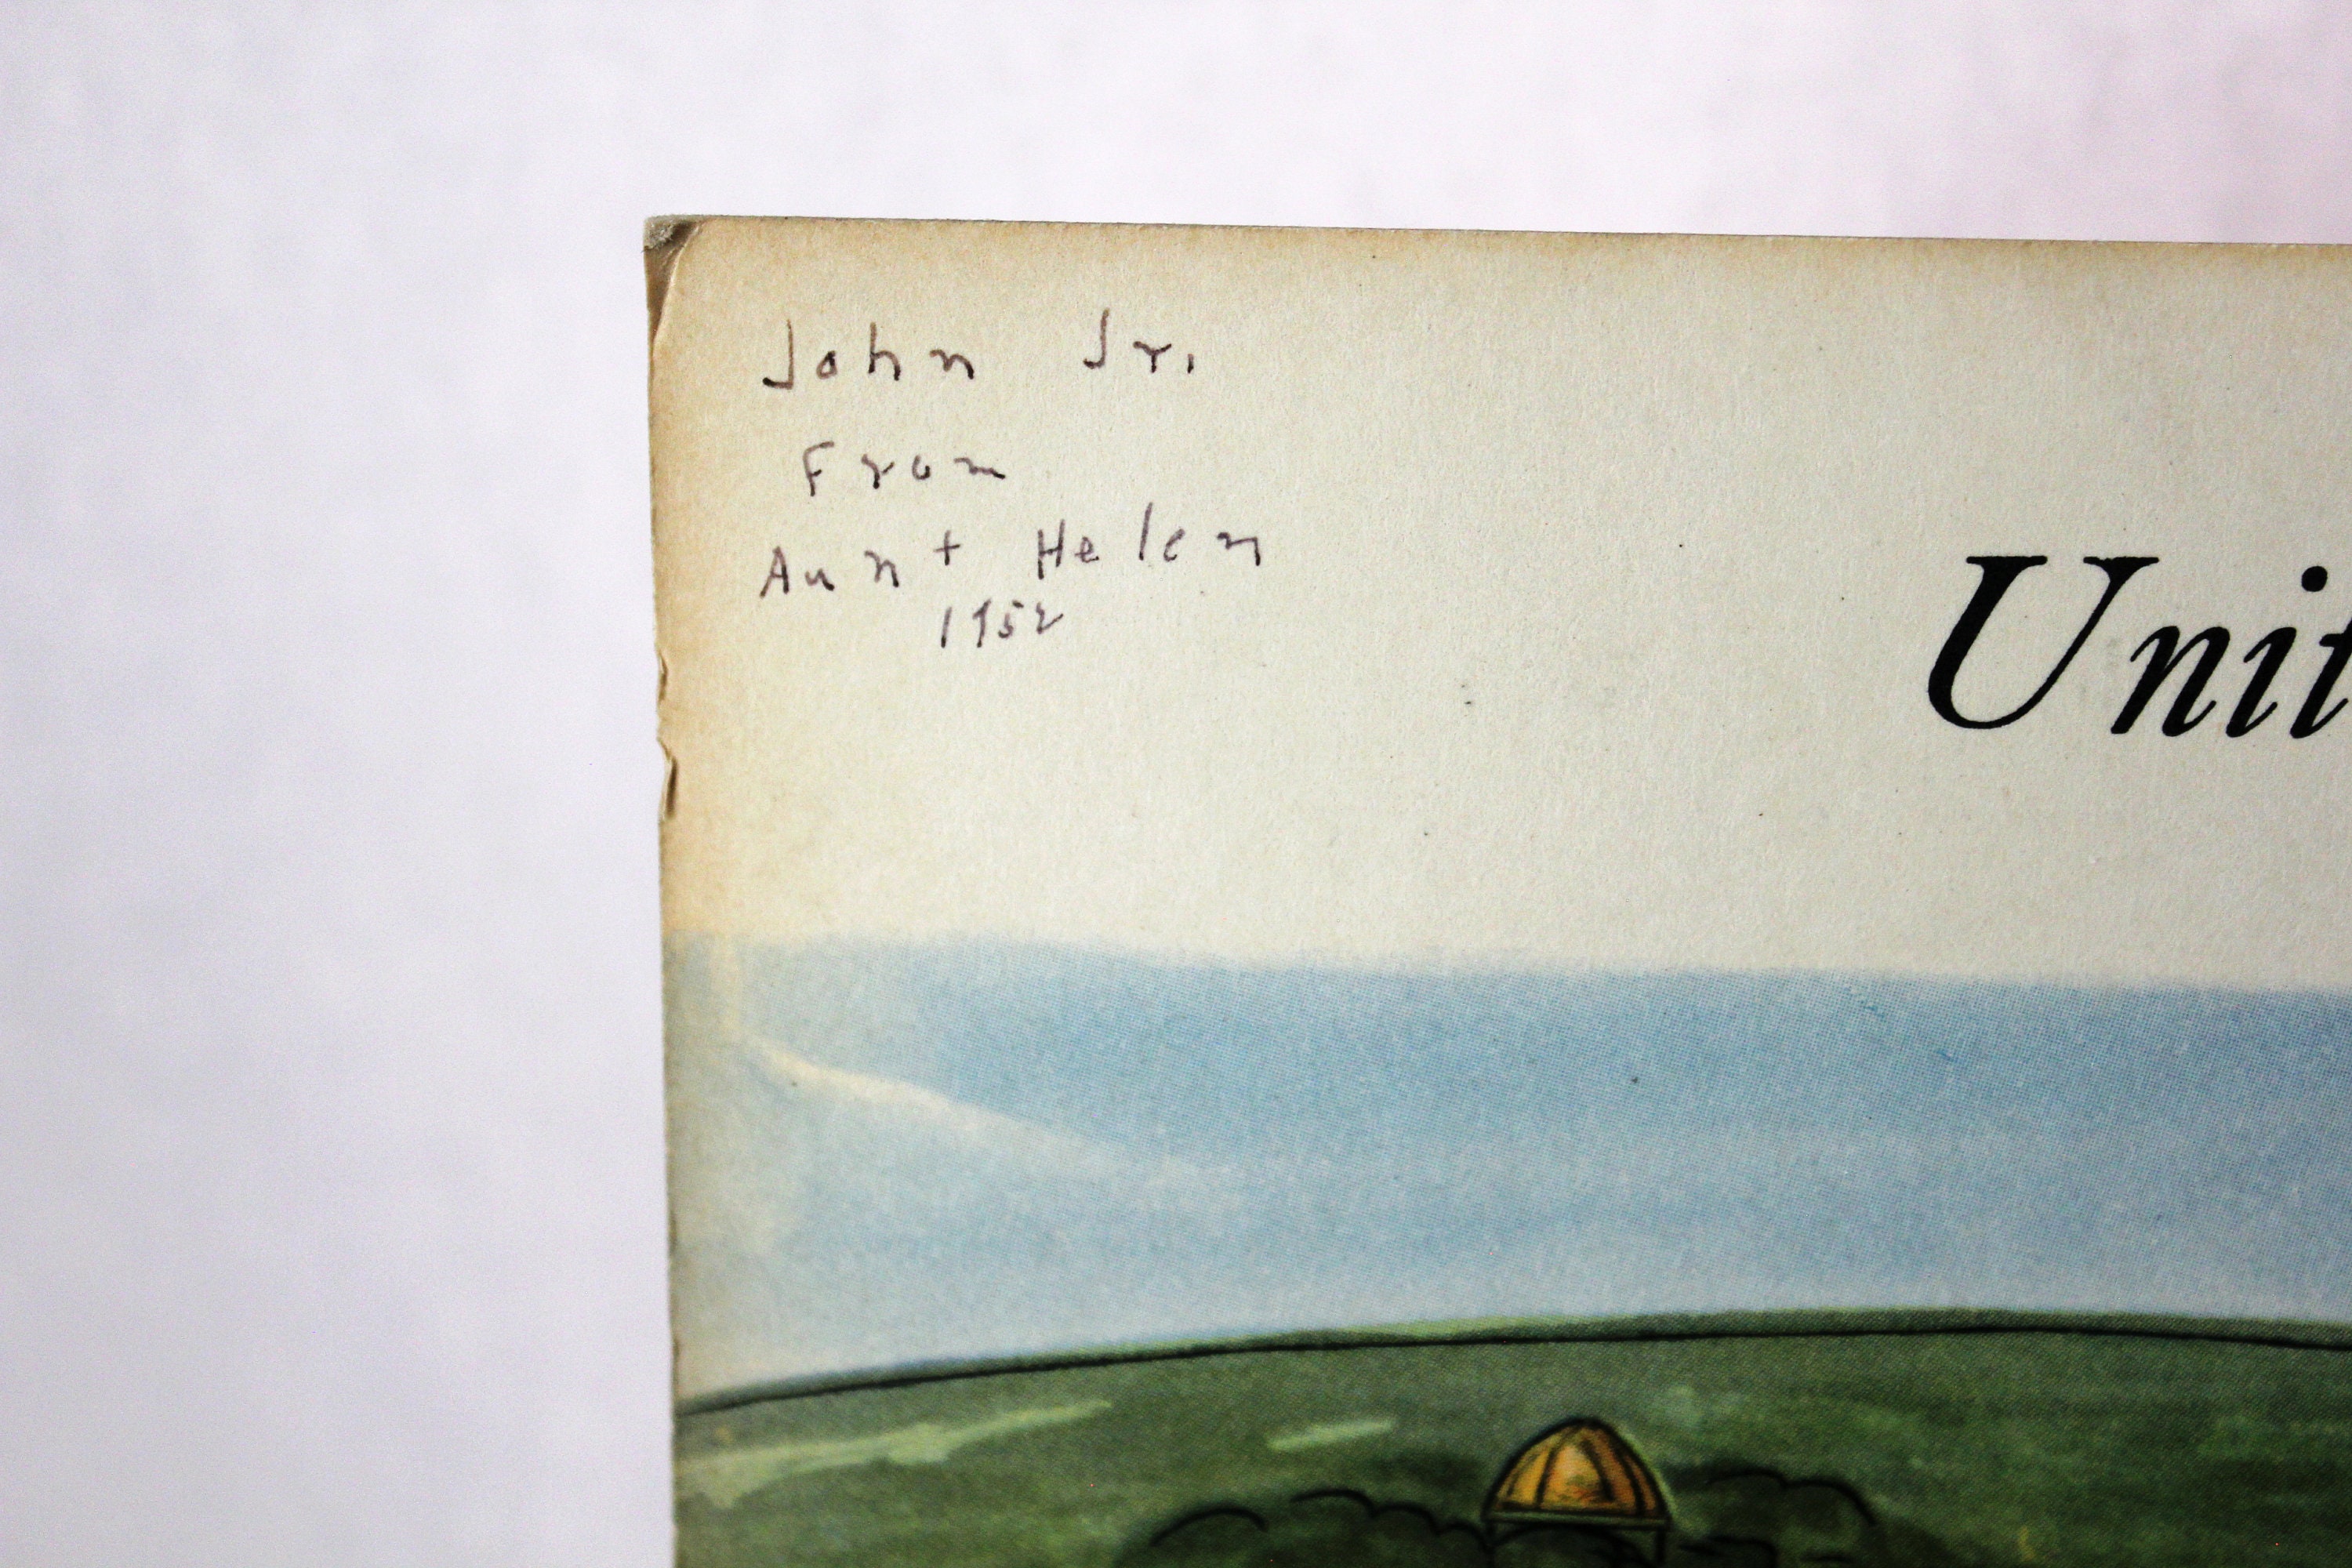 John Jr.
From
Aunt Helen
1952
Unit